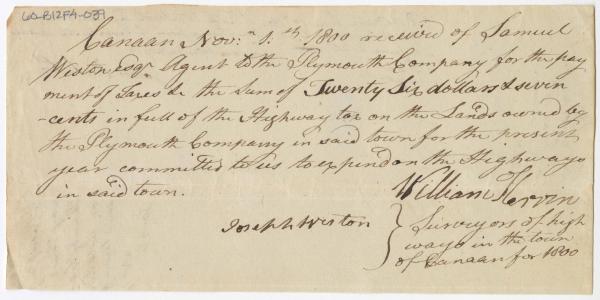 60-B12F4-039
Canaan Nov.r 1.th 1800 received of Samuel
Weston Esqr Agent to the Plymouth Company for the pay
ment of Taxes &c the Sum of Twenty Six dollars & seven
-cents in full of the Highway tax on the Lands owned by
the Plymouth Company in said town for the present
year committed to us to expend on the Highways
in said town.
William Kervin
Joseph Weston
Surveyors of high
ways in the town
of Canaan for 1800